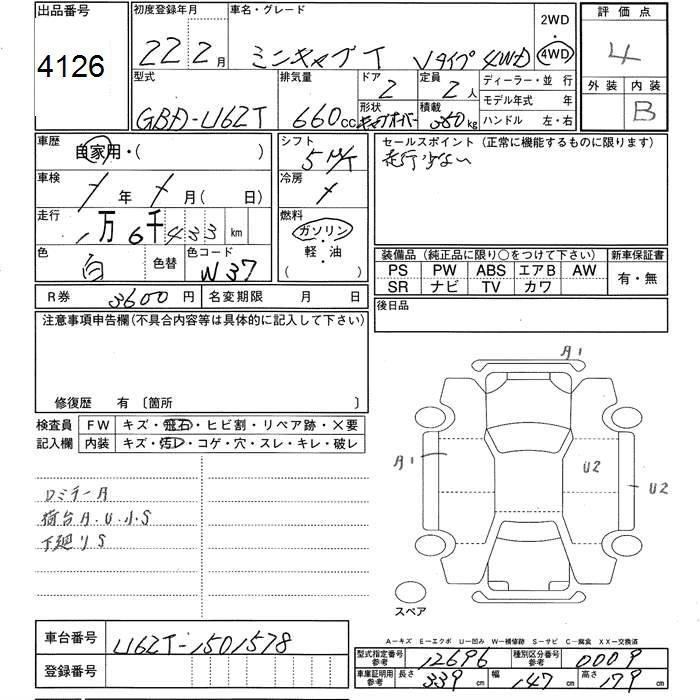 出品番号 4126
初度登録年月 22 2月
車名・グレード ミニキャブT Vタイプ 4WD
2WD ・ 4WD
評価点 4
外装 内装 B
型式 GBD-U62T
排気量 660cc
ドア 2 定員 2人
形状 キャブオーバー 積載 350kg
ディーラー・並 行
モデル年式 年
ハンドル 左・右
車歴 自家用・( )
シフト 5 M/T
セールスポイント (正常に機能するものに限ります)
走行少ない
車検 / 年 / 月 ( 日)
冷房 /
走行 1万6千433 km
燃料 ガソリン・軽・油 ( )
色 白 色替 色コード W37
装備品 (純正品に限り○をつけて下さい) 新車保証書
PS PW ABS エアB AW 有・無
SR ナビ TV カワ
R券 3600円 名変期限 月 日
後日品
注意事項申告欄(不具合内容等は具体的に記入して下さい)
修復歴 有 〔箇所 〕
検査員記入欄
FW キズ・飛石・ヒビ割・リペア跡・×要
内装 キズ・汚レ・コゲ・穴・スレ・キレ・破レ
A1
A1
U2
U2
ロミラーA
荷台A.U.小S
下廻りS
スペア
A−キズ E−エクボ U−凹み W−補修跡 S−サビ C−腐食 XX−交換済
車台番号 U62T-1501578
登録番号
型式指定番号参考 12696 種別区分番号参考 0009
車庫証明用参考 長さ 339cm 幅 147cm 高さ 179cm